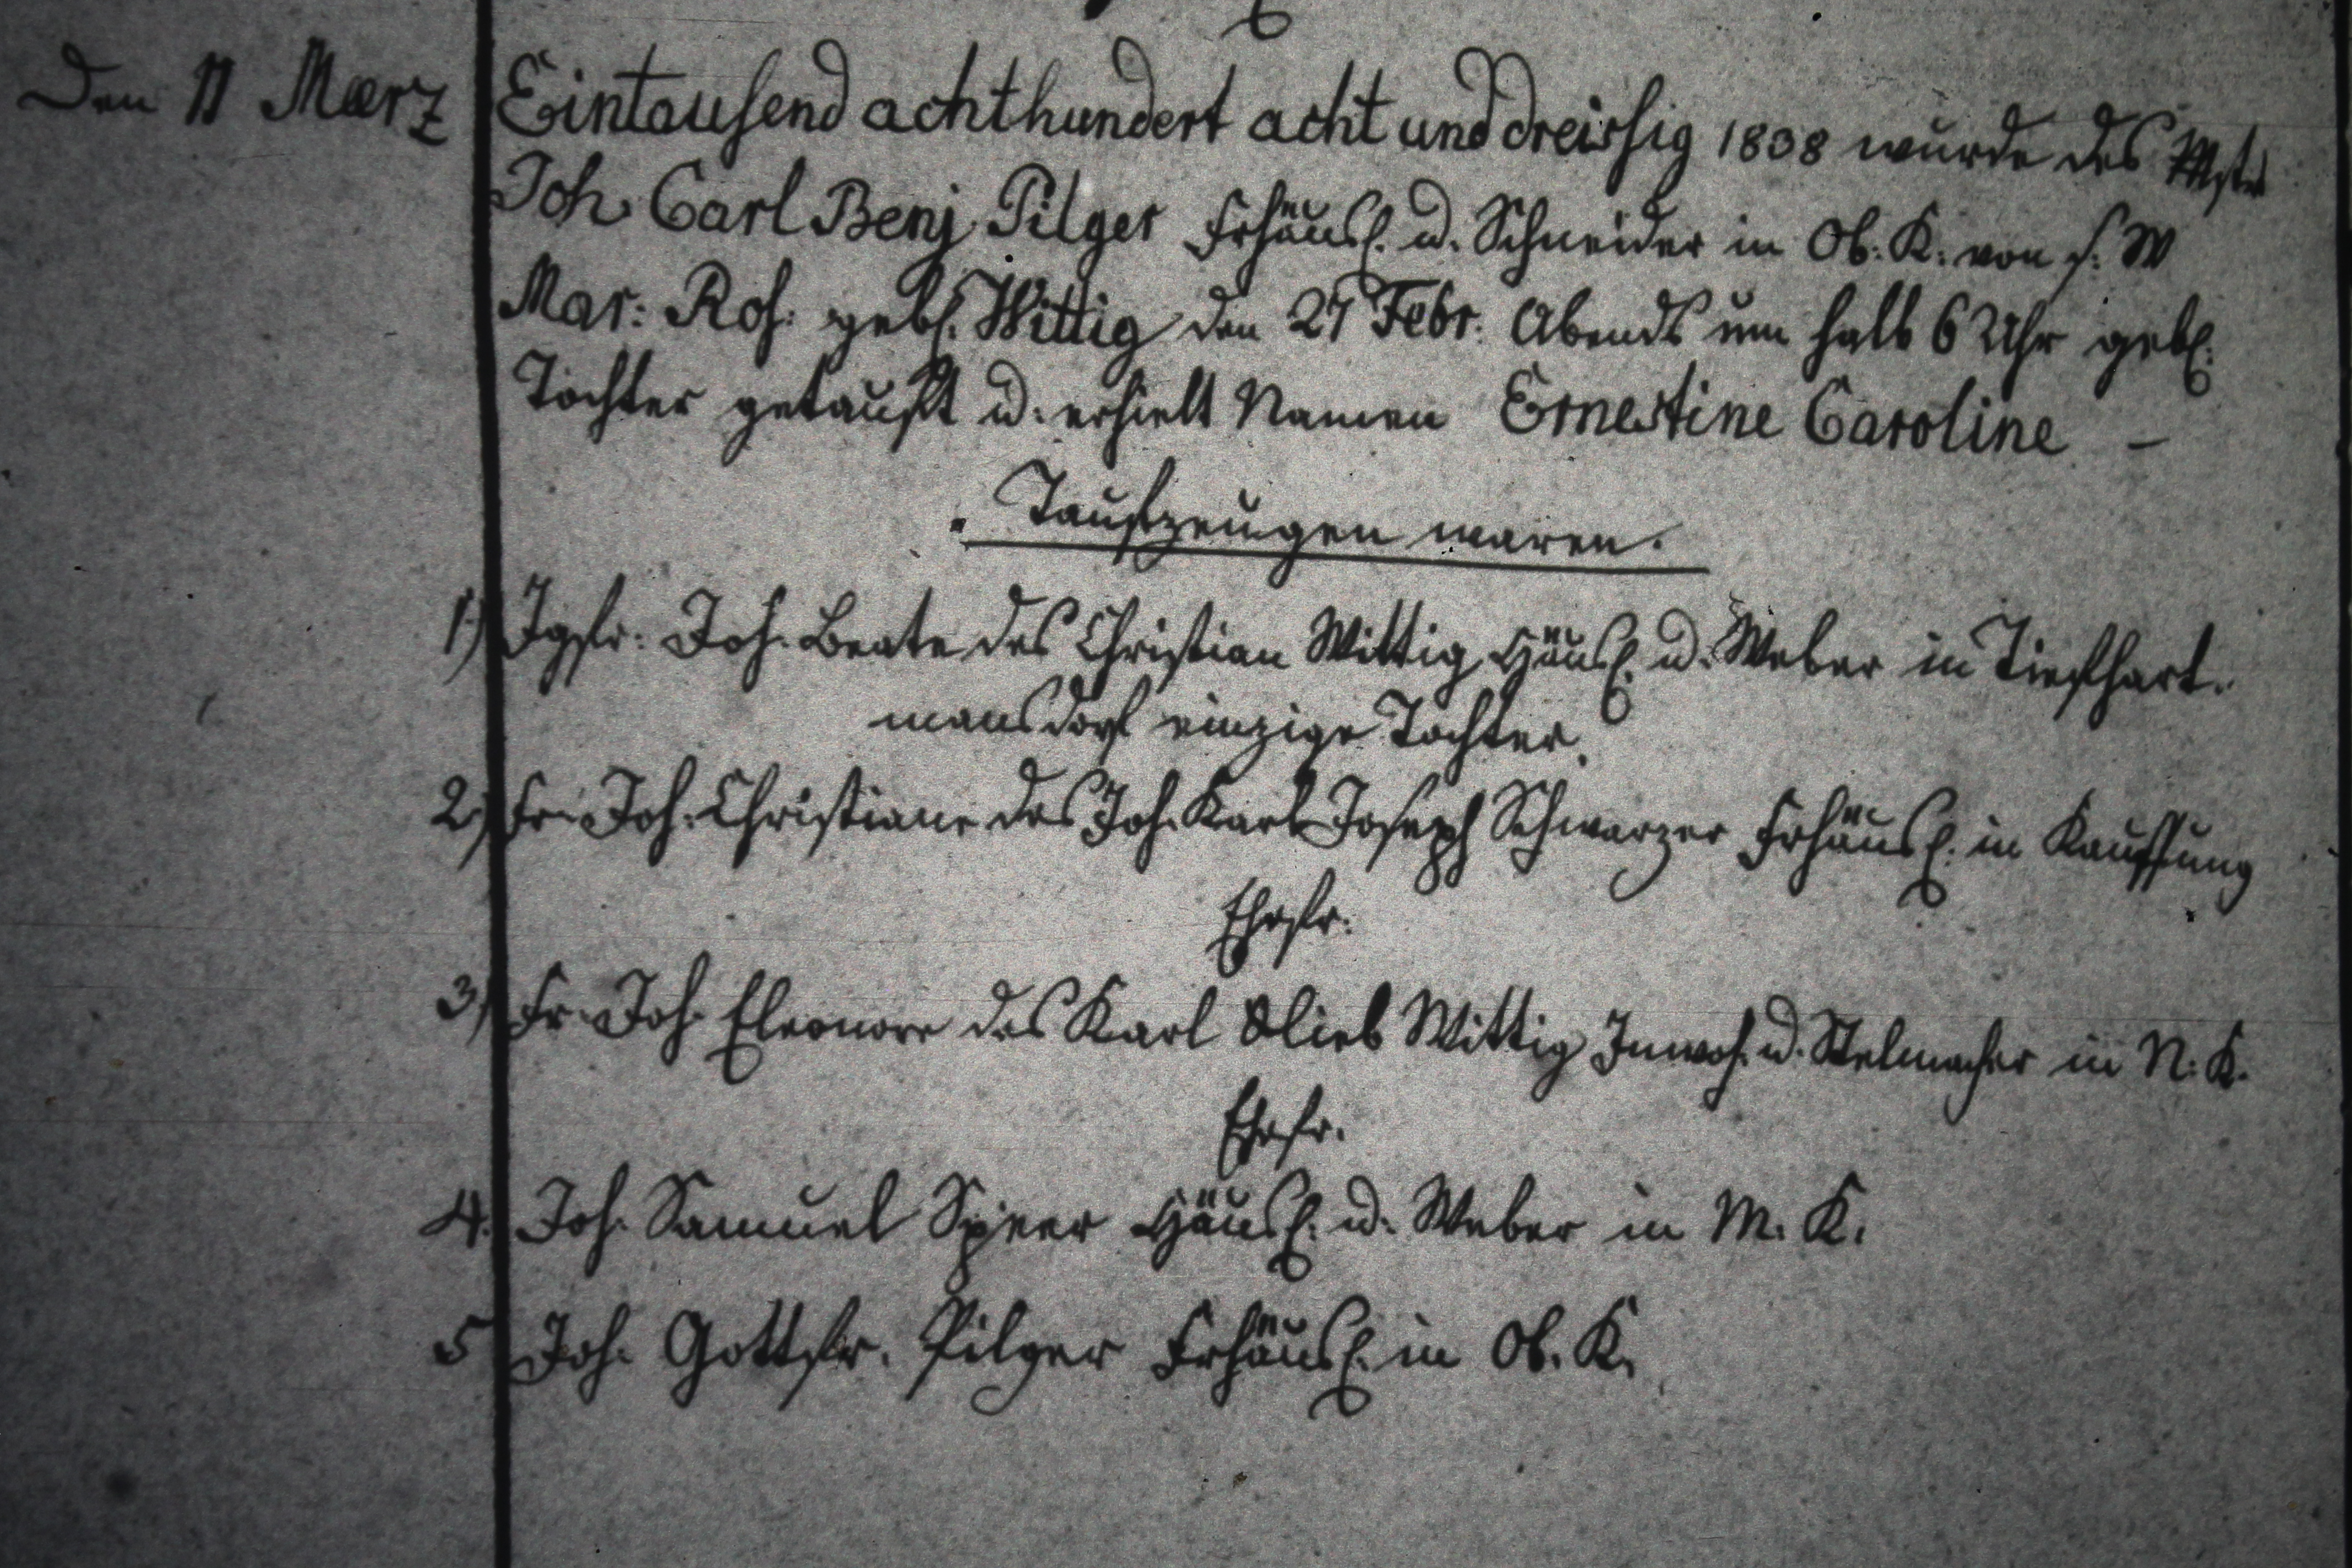 Den 11 Maerz
Eintausend achthundert acht und dreissig 1838 wurde des Mstr
Joh. Carl Benj. Pilger Frhäusl. u. Schneider in Ob: K: von s. W
Mar: Ros: gebl. Wittig den 27 Febr: Abends um halb 6 Uhr gebl.
Tochter getauft u. erhielt Namen Ernestine Caroline –
Taufzeugen waren.
1) Jgfr: Joh. Beate des Christian Wittig Häusl. u. Weber in Tiefhart-
mansdorf einzige Tochter.
2) Fr. Joh. Christiane des Joh. Karl Joseph Schwarzer Frhäusl. in Kauffung
Ehefr.
3) Fr. Joh. Eleonore des Karl Glieb Wittig Inwoh. u. Stelmacher in N: K.
Ehefr.
4. Joh. Samuel Speer Häusl. u. Weber in M. K.
5 Joh. Gottfr. Pilger Frhäusl. in Ob. K.